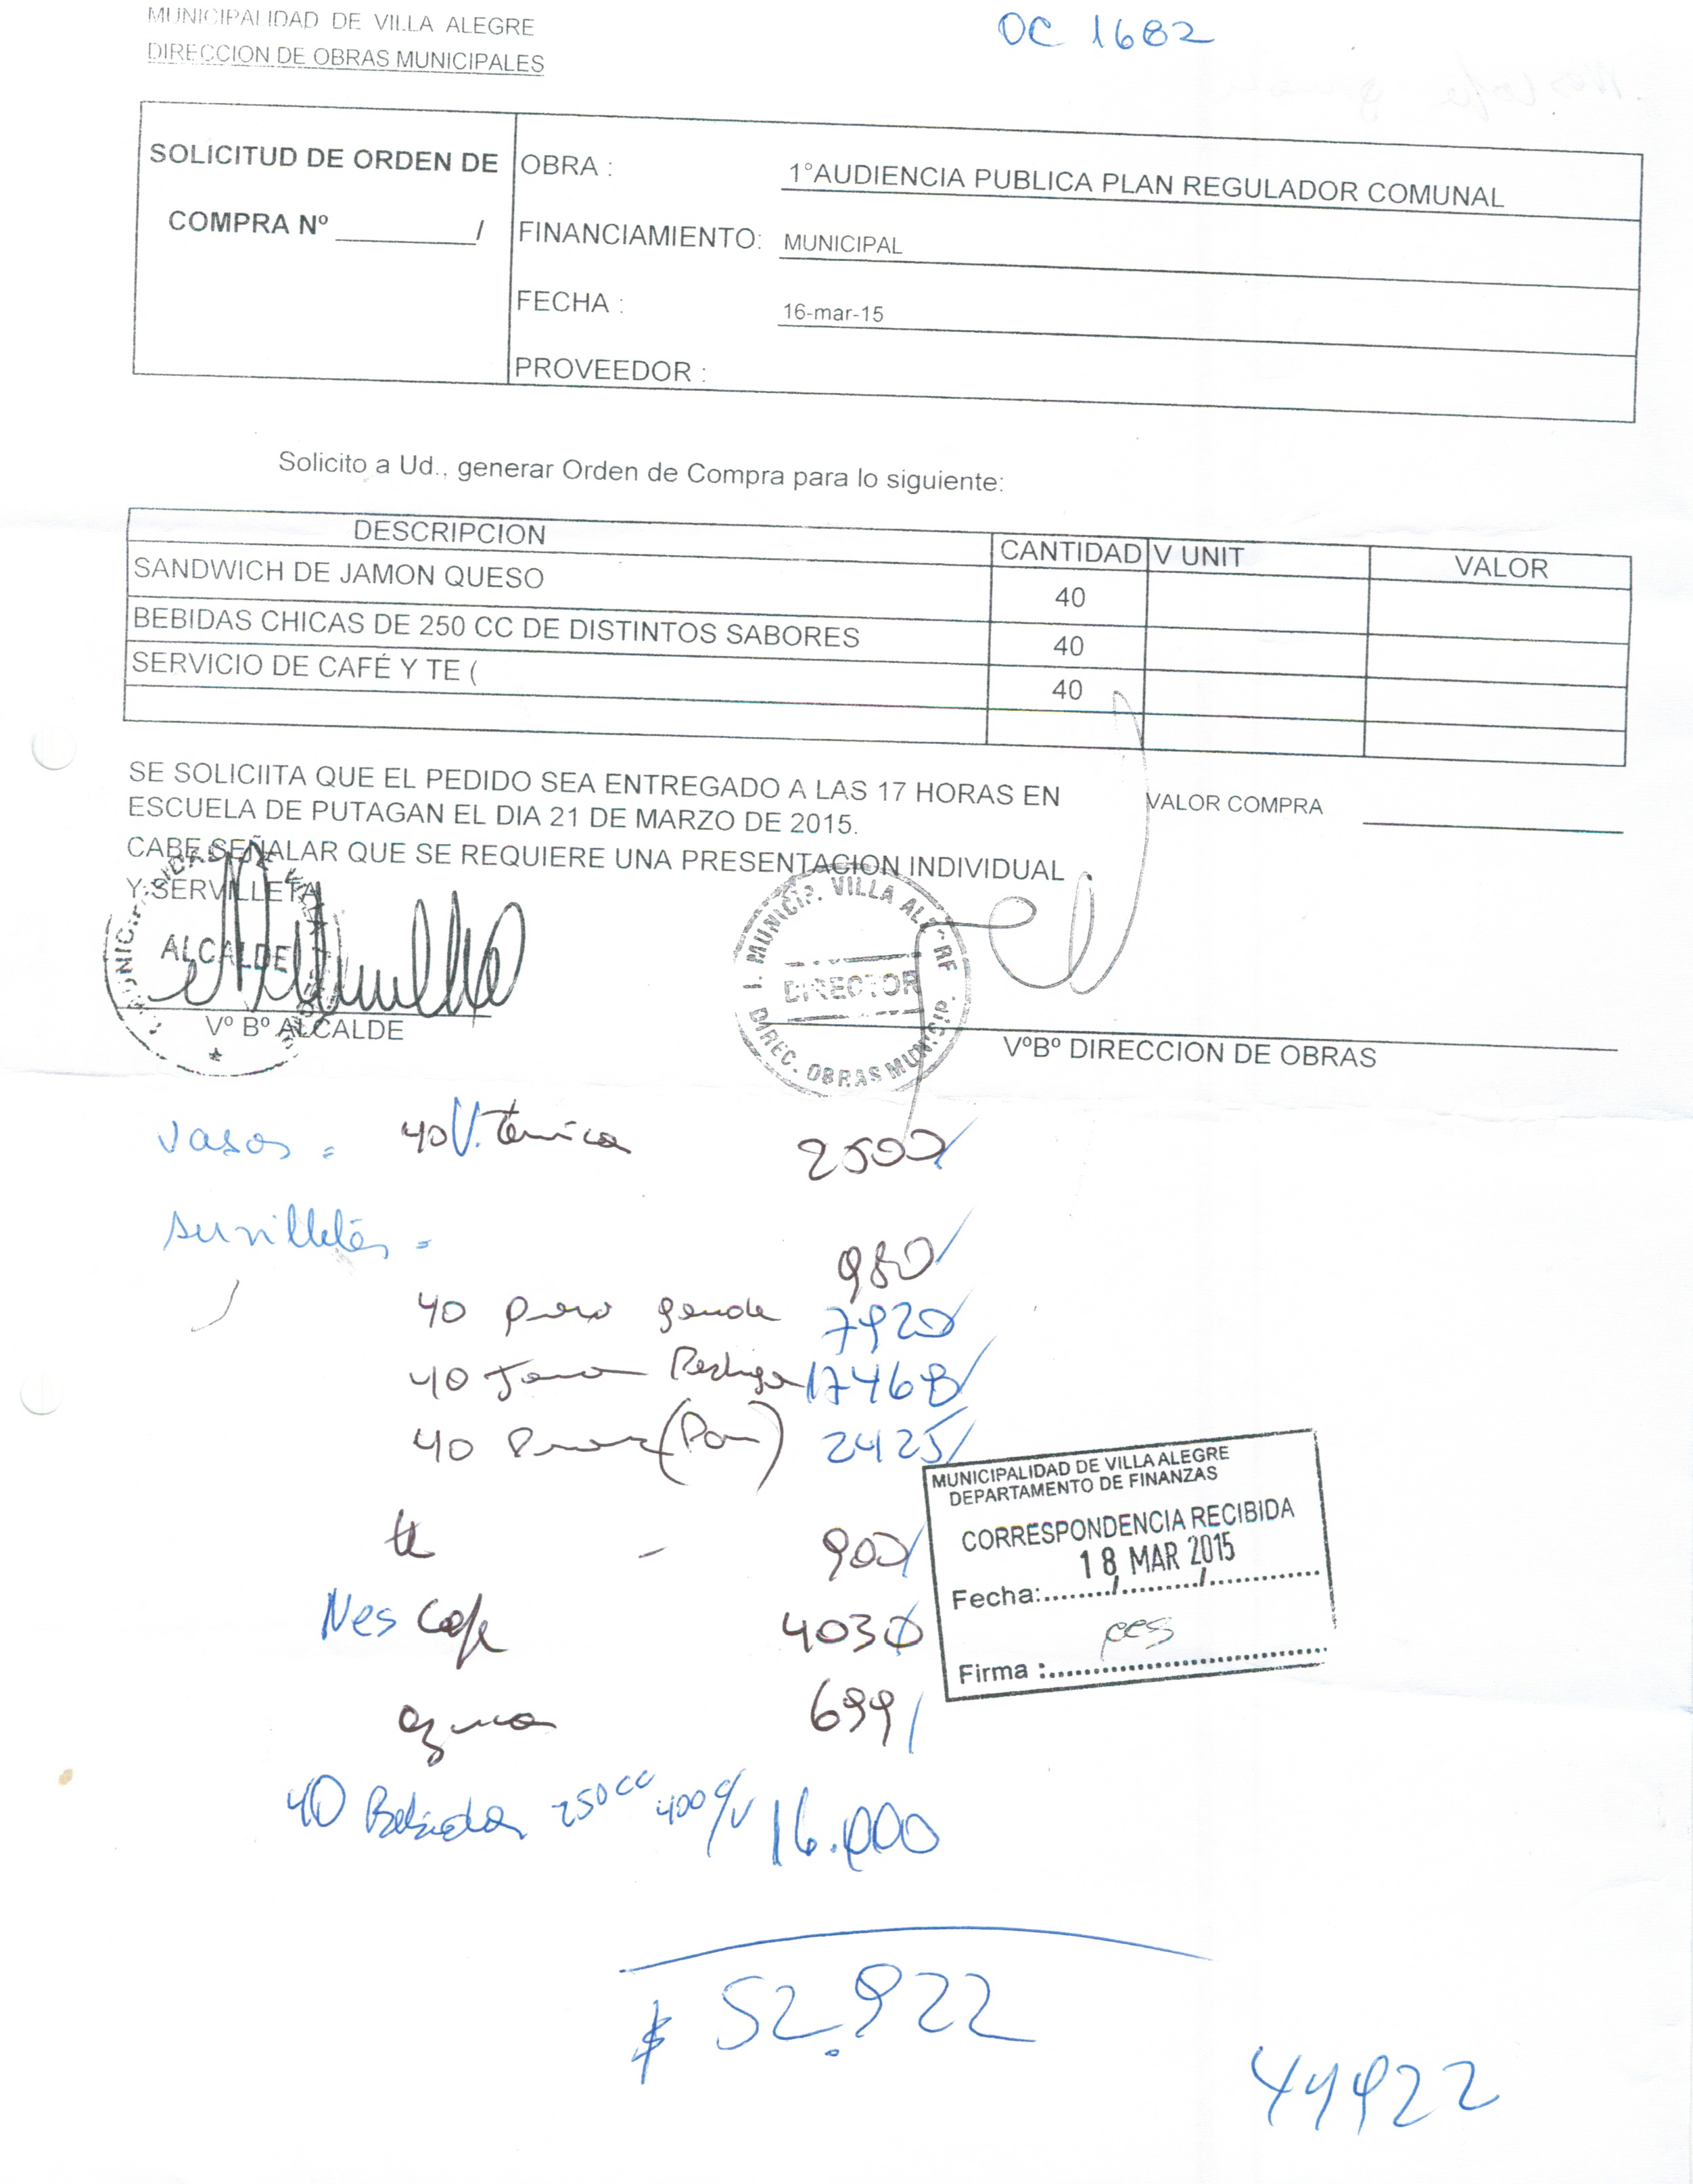 MUNICIPALIDAD DE VILLA ALEGRE
DIRECCION DE OBRAS MUNICIPALES
OC 1682
SOLICITUD DE ORDEN DE
COMPRA Nº ________/
OBRA : 1°AUDIENCIA PUBLICA PLAN REGULADOR COMUNAL
FINANCIAMIENTO: MUNICIPAL
FECHA : 16-mar-15
PROVEEDOR :
Solicito a Ud., generar Orden de Compra para lo siguiente:
DESCRIPCION CANTIDAD V UNIT VALOR
SANDWICH DE JAMON QUESO 40
BEBIDAS CHICAS DE 250 CC DE DISTINTOS SABORES 40
SERVICIO DE CAFÉ Y TE ( 40
SE SOLICIITA QUE EL PEDIDO SEA ENTREGADO A LAS 17 HORAS EN
ESCUELA DE PUTAGAN EL DIA 21 DE MARZO DE 2015.
VALOR COMPRA
CABE SEÑALAR QUE SE REQUIERE UNA PRESENTACION INDIVIDUAL
Y SERVILLETA
ALCALDE
Vº Bº ALCALDE
I. MUNICIP. VILLA ALEGRE
DIRECTOR
DIREC. OBRAS MUNICIP.
VºBº DIRECCION DE OBRAS
vasos = 40 V. 2500
servilletas = 980
40 7920
40 17468
40 (Pan) 2425
te - 900
Nes cafe 4030
699
40 Bebidas 250cc 400 c/u 16.000
MUNICIPALIDAD DE VILLA ALEGRE
DEPARTAMENTO DE FINANZAS
CORRESPONDENCIA RECIBIDA
18 MAR 2015
Fecha:......./........./..............
Firma :...............................
$ 52.922
44922